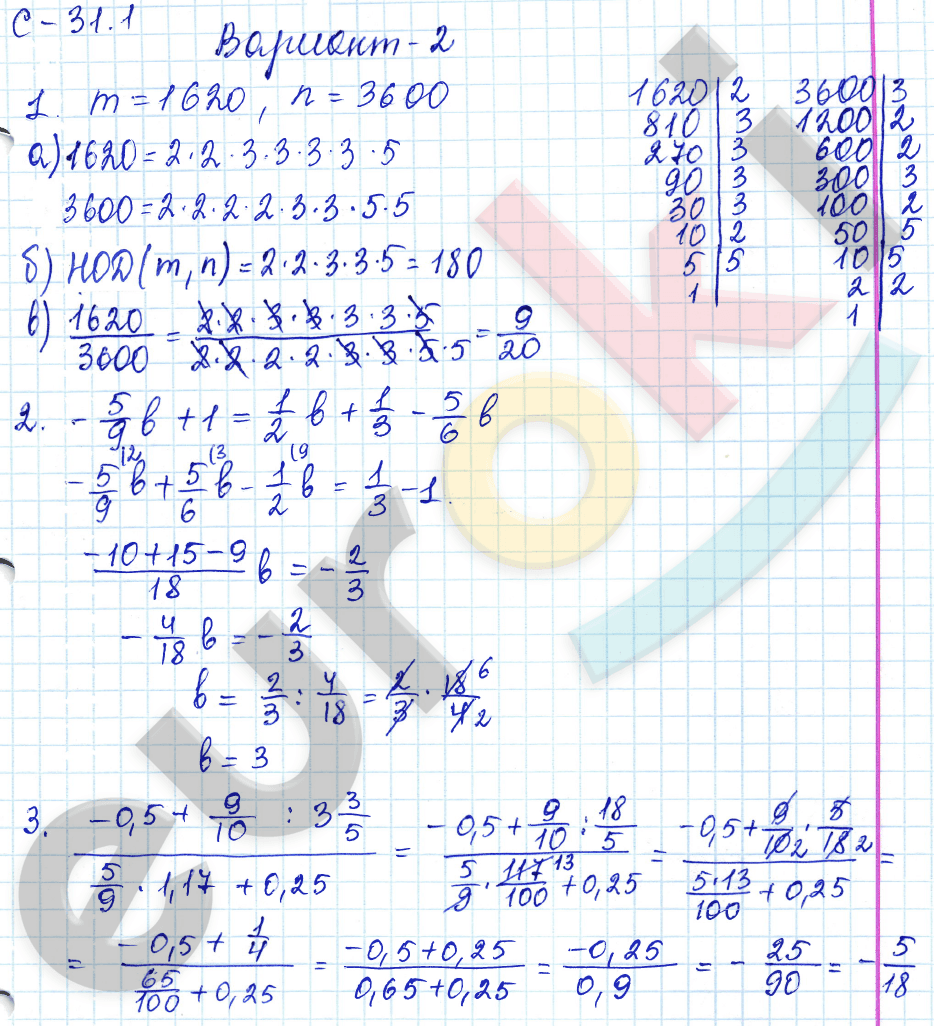 С-31.1
Вариант-2
1. m = 1620, n = 3600
а) 1620 = 2·2·3·3·3·3·5
3600 = 2·2·2·2·3·3·5·5
б) НОД(m, n) = 2·2·3·3·5 = 180
в) 1620/3600 = 2·2·3·3·3·3·5/2·2·2·2·3·3·5·5 = 9/20
1620 | 2
810 | 3
270 | 3
90 | 3
30 | 3
10 | 2
5 | 5
1
3600 | 3
1200 | 2
600 | 2
300 | 3
100 | 2
50 | 5
10 | 5
2 | 2
1
2. -5/9 в + 1 = 1/2 в + 1/3 - 5/6 в
-5/9 (2 в + 5/6 (3 в - 1/2 (9 в = 1/3 - 1.
-10+15-9/18 в = -2/3
-4/18 в = -2/3
в = 2/3 : 4/18 = 2/3 · 18 6/4 2
в = 3
3. -0,5 + 9/10 : 3 3/5 / 5/9 · 1,17 + 0,25 = -0,5 + 9/10 : 18/5 / 5/9 · 117 13/100 + 0,25 = -0,5 + 9/10 2 · 5/18 2 / 5·13/100 + 0,25 =
= -0,5 + 1/4 / 65/100 + 0,25 = -0,5 + 0,25 / 0,65 + 0,25 = -0,25/0,9 = -25/90 = -5/18
euroki